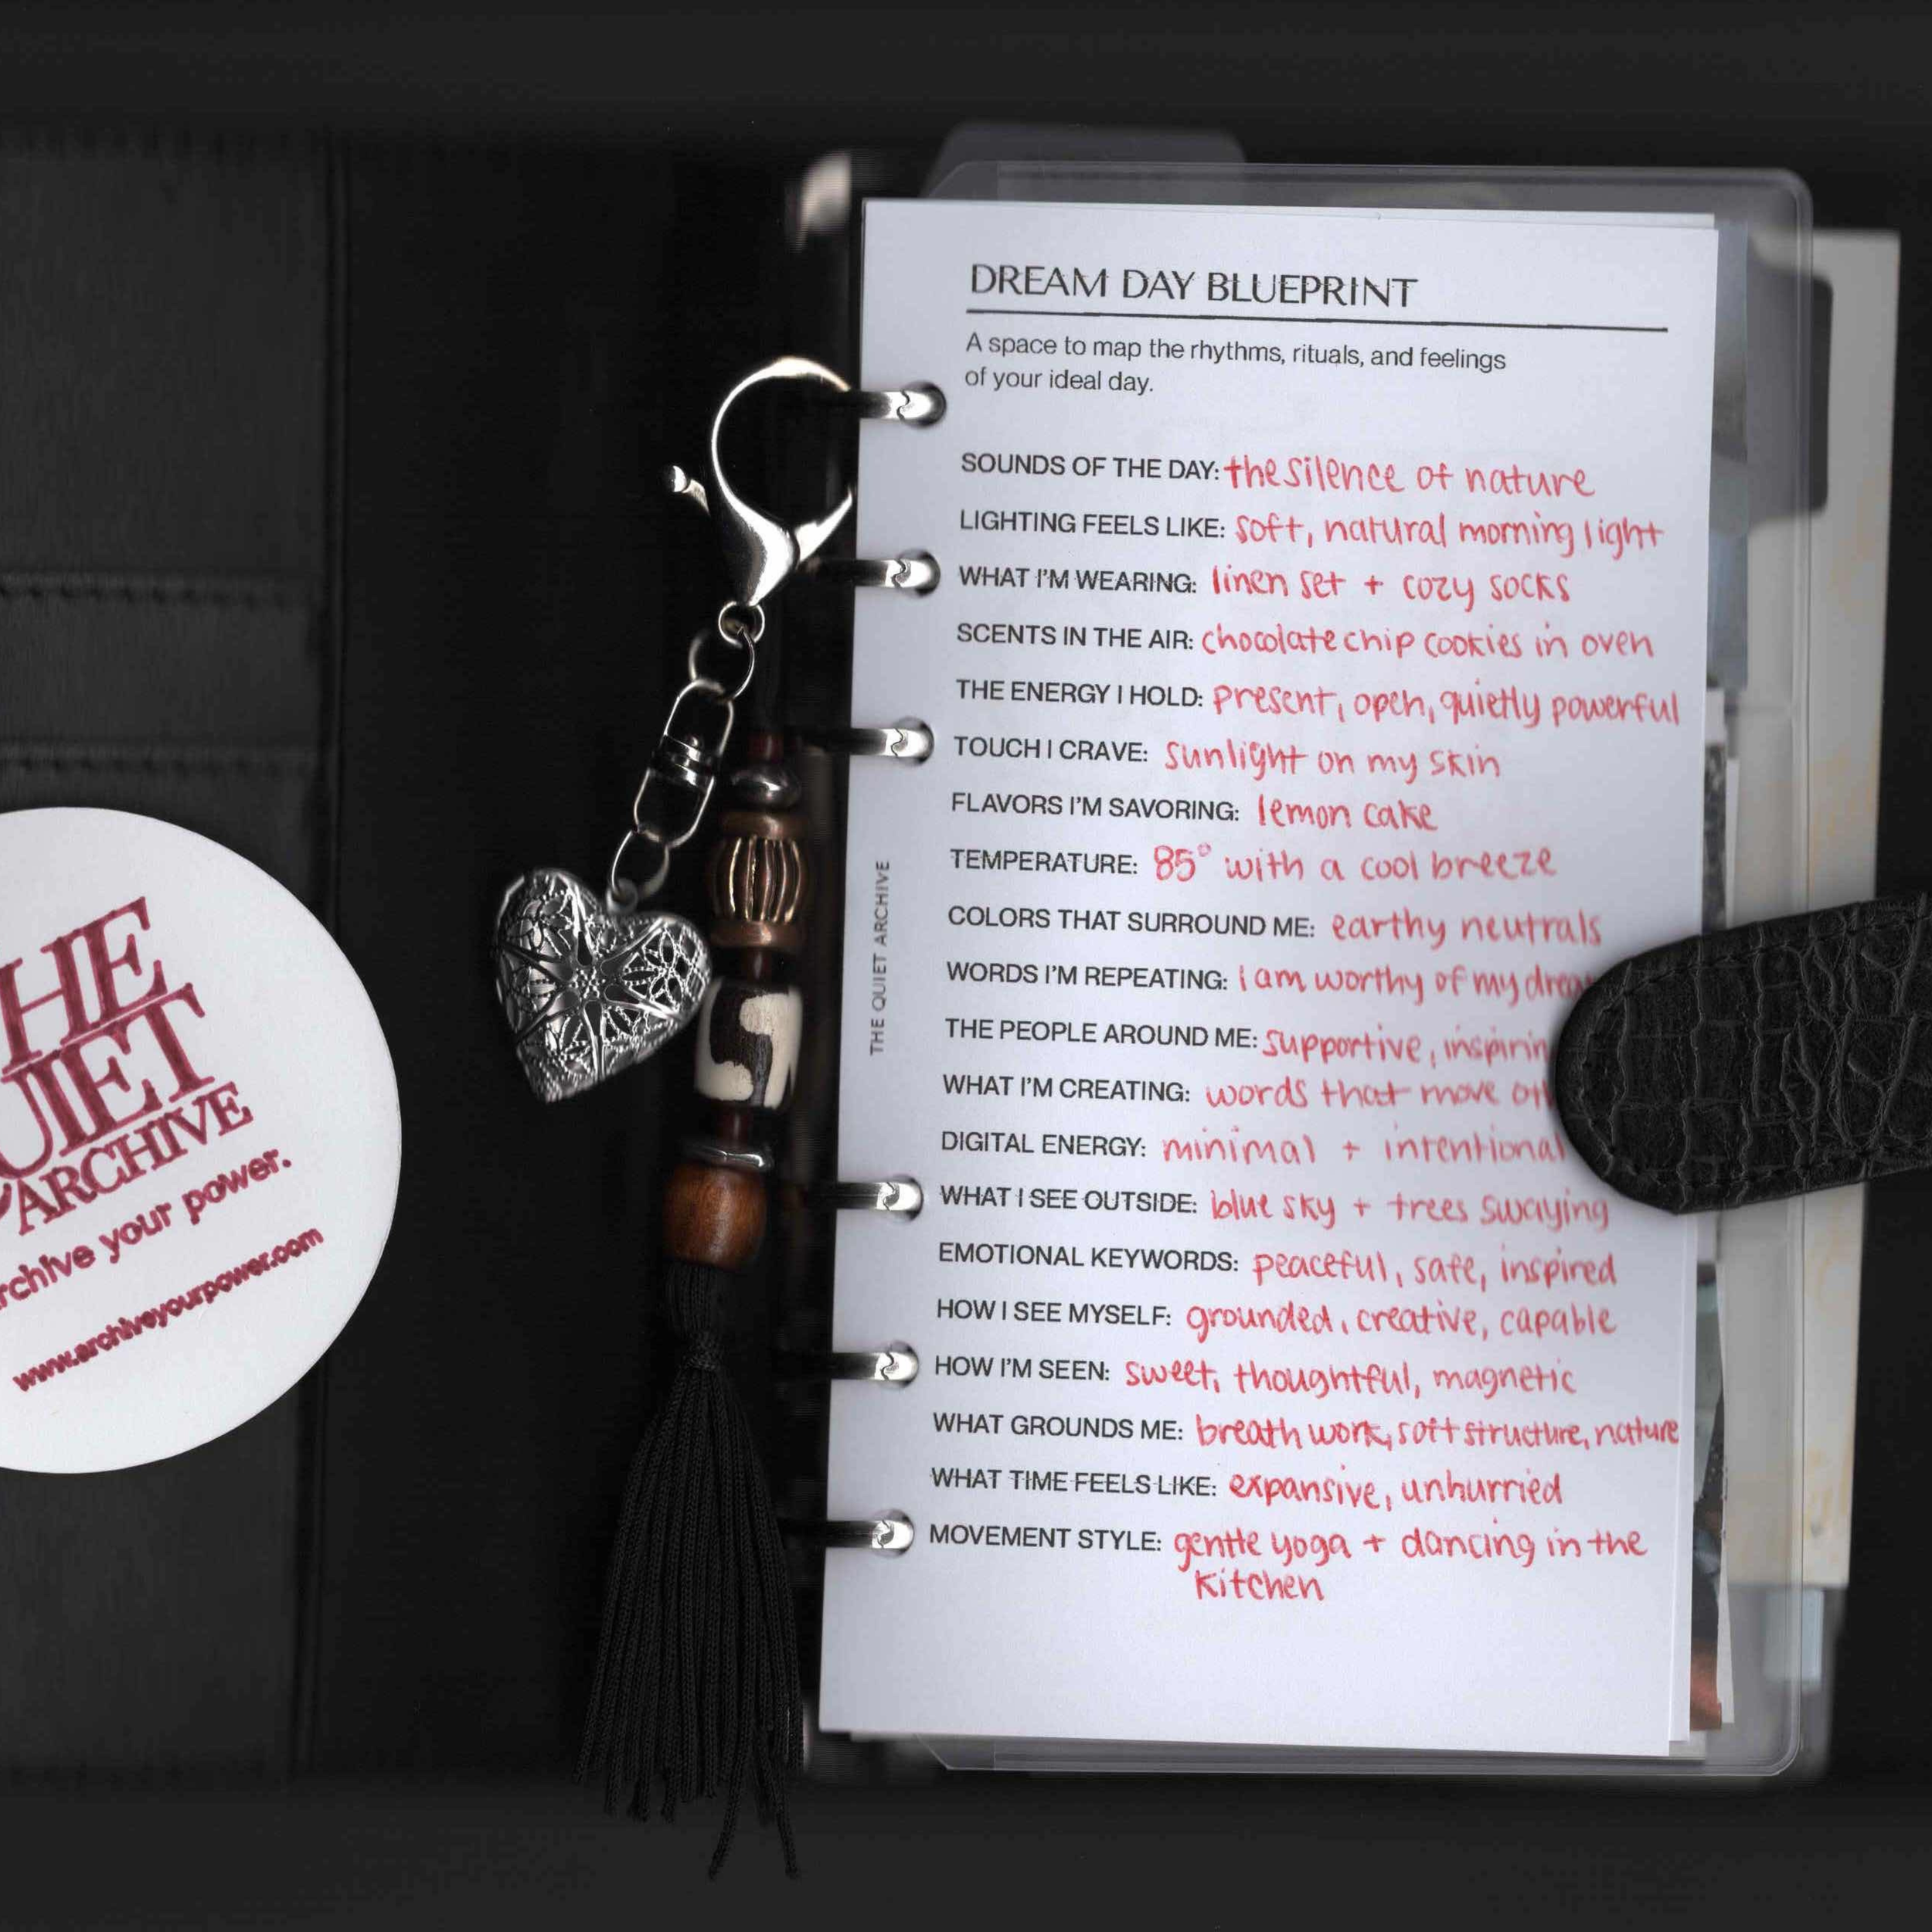 THE
QUIET
ARCHIVE
archive your power.
www.archiveyourpower.com
THE QUIET ARCHIVE
DREAM DAY BLUEPRINT
A space to map the rhythms, rituals, and feelings
of your ideal day.
SOUNDS OF THE DAY: the silence of nature
LIGHTING FEELS LIKE: soft, natural morning light
WHAT I'M WEARING: linen set + cozy socks
SCENTS IN THE AIR: chocolate chip cookies in oven
THE ENERGY I HOLD: present, open, quietly powerful
TOUCH I CRAVE: sunlight on my skin
FLAVORS I'M SAVORING: lemon cake
TEMPERATURE: 85° with a cool breeze
COLORS THAT SURROUND ME: earthy neutrals
WORDS I'M REPEATING: i am worthy of my
THE PEOPLE AROUND ME: supportive,
WHAT I'M CREATING: words that move
DIGITAL ENERGY: minimal + intentional
WHAT I SEE OUTSIDE: blue sky + trees swaying
EMOTIONAL KEYWORDS: peaceful, safe, inspired
HOW I SEE MYSELF: grounded, creative, capable
HOW I'M SEEN: sweet, thoughtful, magnetic
WHAT GROUNDS ME: breath work, soft structure, nature
WHAT TIME FEELS LIKE: expansive, unhurried
MOVEMENT STYLE: gentle yoga + dancing in the
kitchen